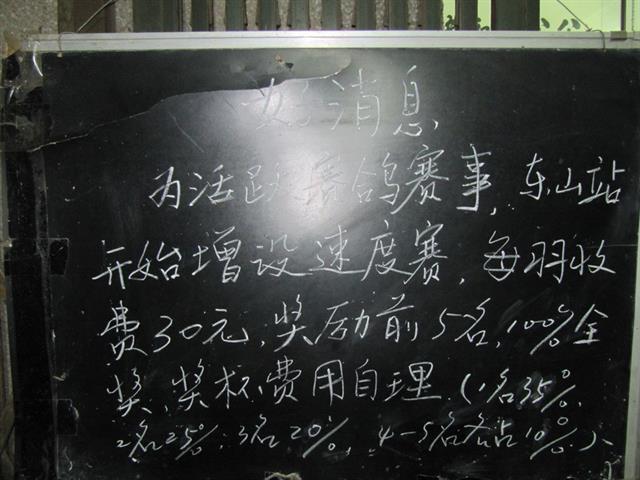 好消息
为活跃赛鸽赛事，东山站
开始增设速度赛，每羽收
费30元，奖励前5名，100%全
奖，奖杯费用自理（1名35%，
2名25%，3名20%，4-5名各占10%）